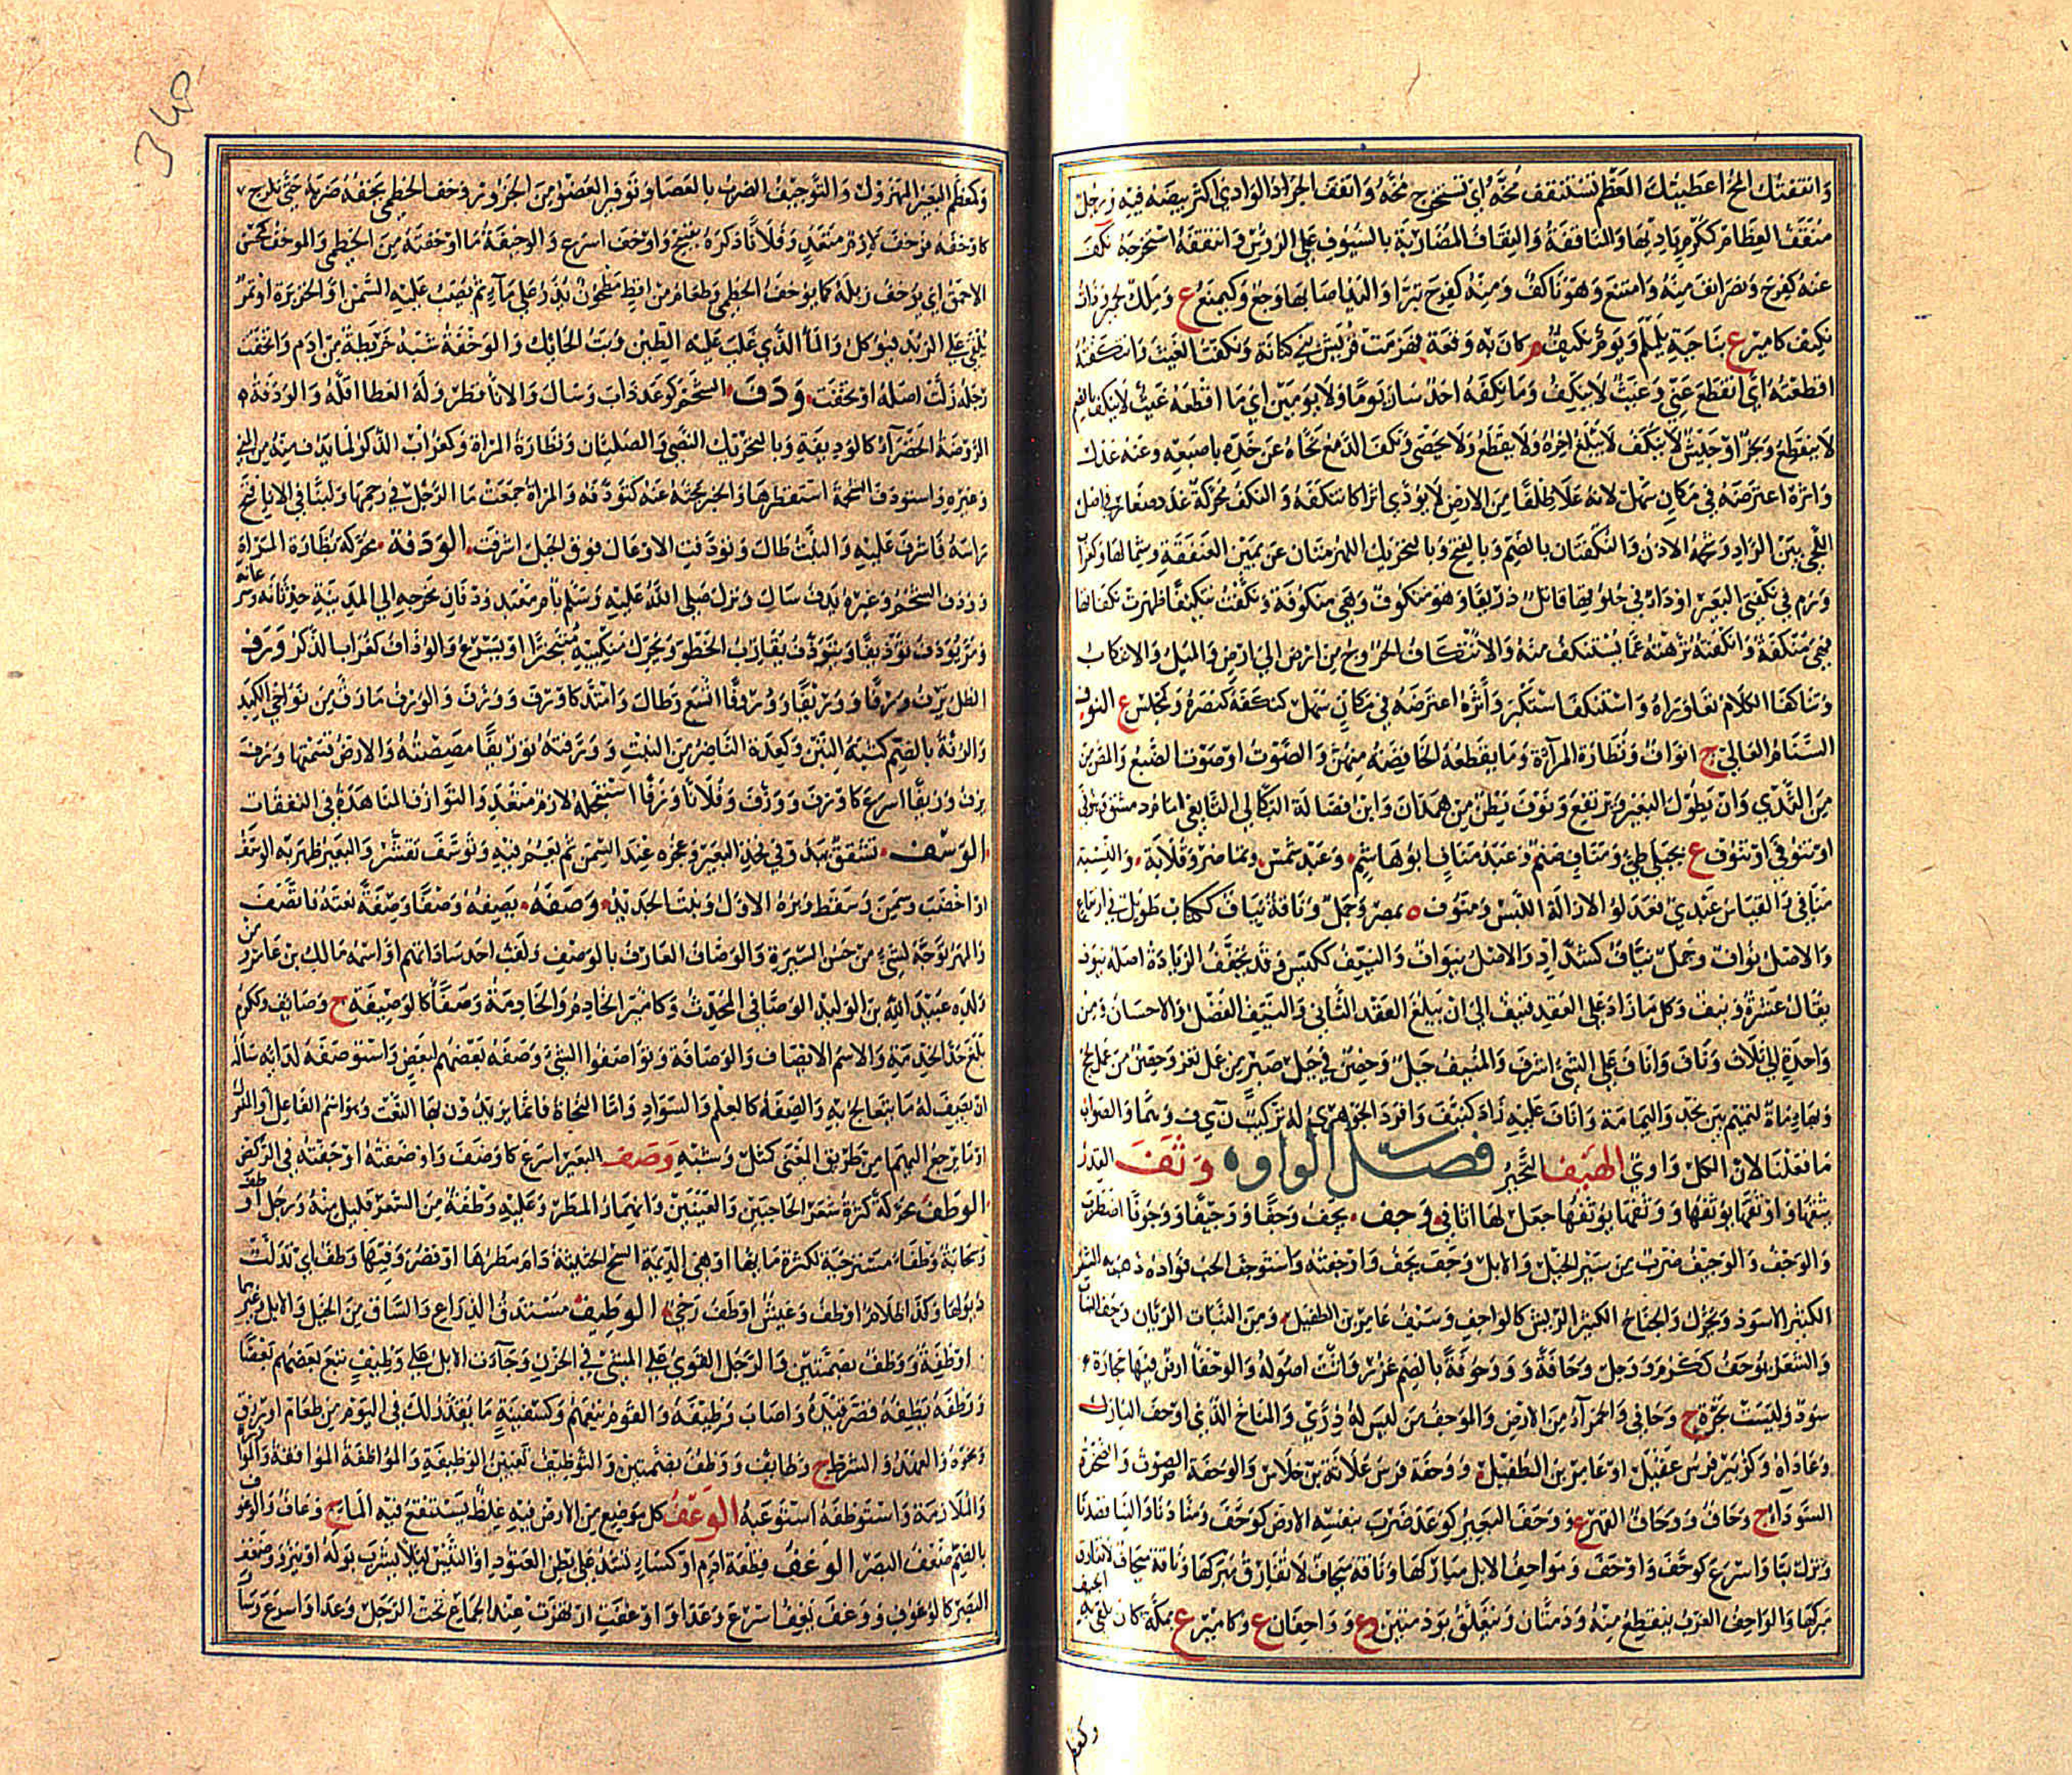 وانتقفتك المخ اعطيتك العظم تستنقف مخه اي تستخرج مخه وانقف الجراد الوادي اكثر بيضه فيه ورجل
منقف العظام ككرم باديها والنافقة والنقاف المضاربة بالسيوف على الرؤس وانتقفه استخرجه نكف
عنه كفرح ونصر انف منه وامتنع وهو ناكف ومنه كفرح تبرا واليد اصابها وجع وكيمنع ع وملك لحمير وذات
نكيف كامير ع بناحية يلملم ويوم نكيف م كان به وقعة فهزمت قريش بني كنانة ونكفت الغيث وانتكفته
اقطعته اي انقطع عني وغيث لا ينكف وما نكفه احد سار يوما ولا يومين اي ما اقطعه غيث لا ينكف بالضم
لا ينقطع وبحر او جيش لا ينكف لا يبلغ اخره ولا يقطع ولا يحصى ونكف الدمع نحاه عن خده باصبعه وعنه عدل
واثره اعترضه في مكان سهل لانه علا ظلفا من الارض لا يؤدي اثرا كانتكفه والنكف محركة غدد صغار في اصل
اللحي بين الراد وشحمة الاذن والنكفتان بالضم وبالفتح وبالتحريك اللهزمتان عن يمين العنفقة وشمالها وكغراب
ورم في نكفتي البعير او داء في حلوقها قاتل ذريعا وهو منكوف وهي منكوفة ونكفت تنكيفا ظهرت نكفاتها
فهي منكفة وانكفته نزهته عما يستنكف منه والانتكاف الخروج من ارض الى ارض والميل والانتكاث
وتناكفا الكلام تعاوراه واستنكف استكبر وأثره اعترضه في مكان سهل كنكفه كنصره وكمجلس ع النوف
السنام العالي ج انواف وبظارة المرأة وما يقطعه الخافضة منهن والصوت او صوت الضبع والمص من
من الثدي وان يطول البعير ويرتفع ونوف بطن من همدان وابن فضالة البكالي التابعي امام دمشق وينوفى
او تنوفى او تنوف ع بجبلي طيء ومناف صنم وعبد مناف ابو هاشم وعبد شمس وتماضر وقلابة والنسبة
منافي والقياس عبدي فعدلوا لازالة اللبس ومنوف ه بمصر وجمل وناقة نياف ككتاب طويل في ارتفاع
والاصل نواف وجمل نياف كشداد والاصل نيواف والنيف ككيس وقد يخفف الزيادة اصله نيوف
يقال عشرة ونيف وكل ما زاد على العقد فنيف الى ان يبلغ العقد الثاني والنيف الفضل والاحسان ومن
واحدة الى ثلاث وناف واناف على الشيء اشرف والمنيف جبل وحصن في جبل صبر من عمل تعز وحصن من عمل لحج
وبهاء ماءة لتميم بين نجد واليمامة واناف عليه زاد كنيف وافرد الجوهري له تركيب ن ي ف وهما والصواب
ما فعلنا لان الكل واوي الهيف التحير فصل الواو وثف القدر
يثفها واوثفها يوثفها ووثفها يوثفها جعل لها اثافي وجف يجف وجفا ووجيفا ووجوفا اضطرب
والوجف والوجيف ضرب من سير الخيل والابل وجف يجف واوجفته واستوجف الحب فؤاده ذهب به الشعر
الكثير الاسود ويحرك والجناح الكثير الريش كالواحف وسيف عامر بن الطفيل ومن النبات الريان وحف النبات
والشعر يوحف ككرم ووجل وحافة ووحوفة بالضم غزر واثت اصوله والوحفاء ارض فيها حجارة
سود وليست بحرة ج وحافي والحمراء من الارض والموحف من ليس له ذرى والمناخ الذي اوحف البازل
وعاداه وكزبير فرس عقيل او عامر بن الطفيل ووحفة فرس علاثة بن جلاس والوحفة الصوت والصخرة
السوداء ج وحاف ووحاف القهر ع ووحف البعير كوعد ضرب بنفسه الارض كوحف ومنا دنا والينا قصدنا
ونزل بنا واسرع كوحف واوحف ومواحف الابل مباركها وناقة ميحاف لا تفارق مبركها وناقة ميحاف لا تفارق
مبركها والواحف الغرب ينقطع منه وذمتان ويتعلق بوذمتين وع وواحفان ع وكامير ع بمكة كان يلقى به الجيف
وكمعظم
340
وكمعظم البعير المهزول والتوحيف الضرب بالعصا وتوفير العضو من الجزور وخف الخطمي يخفه ضربه حتى تلزج
كاوخفه فوخف لازم متعد وفلانا ذكره بقبيح واوخف اسرع والوخيفة ما اوخفته من الخطمي والموخف كمحسن
الاحمق اي يوخف زبله كما يوخف الخطمي وطعام من اقط مطحون يذر على ماء ثم يصب عليه السمن او الخزيرة او تمر
يلقى على الزبد فيؤكل والماء الذي غلب عليه الطين وبت الحائك والوخفة شبه خريطة من ادم واتخفت
رجله زلت اصله اوتخفت ودف الشحم كوعد ذاب وسال والاناء قطر وله العطاء اقله والودفة
الروضة الخضراء كالوديفة وبالتحريك النصي والصليان وبظارة المراة وكغراب الذكر لما يدف منه من المني
وغيره واستودف الشحمة استقطرها والخبر بحثه عنه كتودفه والمراة جمعت ماء الرجل في رحمها ولبنا في الاناء فتح
راسه فاشرف عليه والنبت طال وتودفت الاوعال فوق الجبل اشرفت الوذفة محركة بظارة المراة
ووذف الشحم وغيره يذف سال ونزل صلى الله عليه وسلم بام معبد وذفان مخرجه الى المدينة حدثانه وسرعانه
ومر يوذف توذيفا ويتوذف يقارب الخطو ويحرك منكبيه متبخترا او يسرع والوذاف كغراب الذكر ورف
الظل يرف ورفا ووريفا ووروفا اتسع وطال وامتد كاورف وورف والورف ما رق من نواحي الكبد
والرفة بالضم كثبة التبن وكعدة الناضر من النبت وورفته توريفا مصصته والارض قسمتها وزف
يزف وزيفا اسرع كاوزف ووزف وفلانا وزفا استعجله لازم متعد والتوازف المناهدة في النفقات
الوسف تشقق يبدو في فخذ البعير وعجزه عند السمن ثم يعم فيه وتوسف تقشر والبعير ظهر به الوسف
او اخصب وسمن وسقط وبره الاول ونبت الحديد وصفه يصفه وصفا وصفة نعته فاتصف
والمهر توجه لشيء من حسن السيرة والوصاف العارف بالوصف ولقب احد ساداتهم او اسمه مالك بن عامر ومن
ولده عبيد الله بن الوليد الوصافي المحدث وكامير الخادم والخادمة وصفا كالوصيفة ج وصائف وككرم
بلغ حد الخدمة والاسم الايصاف والوصافة وتواصفوا الشيء وصفه بعضهم لبعض واستوصفه لدائه ساله
ان يصف له ما يتعالج به والصفة كالعلم والسواد واما النحاة فانما يريدون بها النعت وهو اسم الفاعل او المفعول
او ما يرجع اليهما من طريق المعنى كمثل وشبه وضف البعير اسرع كاوضف واوضفته اوجفته في الركض
الوطف محركة كثرة شعر الحاجبين والعينين وانهمار المطر وعليه وطفة من الشعر قليل منه ورجل اوطف
وسحابة وطفاء مسترخية لكثرة مائها او هي الديمة السح الحثيثة دام مطرها او قصر وفيها وطف اي تدلت
ذيولها وكذا ظلام اوطف وعيش اوطف رخي الوظيف مستدق الذراع والساق من الخيل والابل وغيرها
اوظفة ووظف بضمتين والرجل القوي على المشي في الحزن وجاءت الابل على وظيف تبع بعضهم بعضا
ووظفه يظفه قصر قيده واصاب وظيفه والقوم تبعهم وكسفينة ما يقدر لك في اليوم من طعام او رزق
ونحوه والعهد والشرط ج وظائف ووظف بضمتين والتوظيف تعيين الوظيفة والمواظفة الموافقة والمؤازرة
والملازمة واستوظفه استوعبه الوعف كل موضع من الارض فيه غلظ يستنقع فيه الماء ج وعاف والوعوف
بالضم ضعف البصر الوغف قطعة ادم او كساء تشد على بطن العتود او التيس لئلا يشرب بوله او ينزو وضعف
البصر كالوغوف ووغف يغف اسرع وعدا واوغف ارتهزت عند الجماع تحت الرجل وعدا واسرع وسار